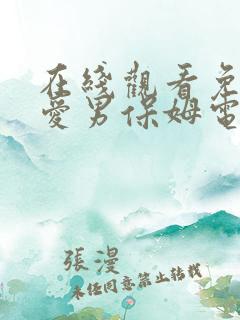 在綫觀看免
愛男保姆電
張漫
未經同意禁止轉載